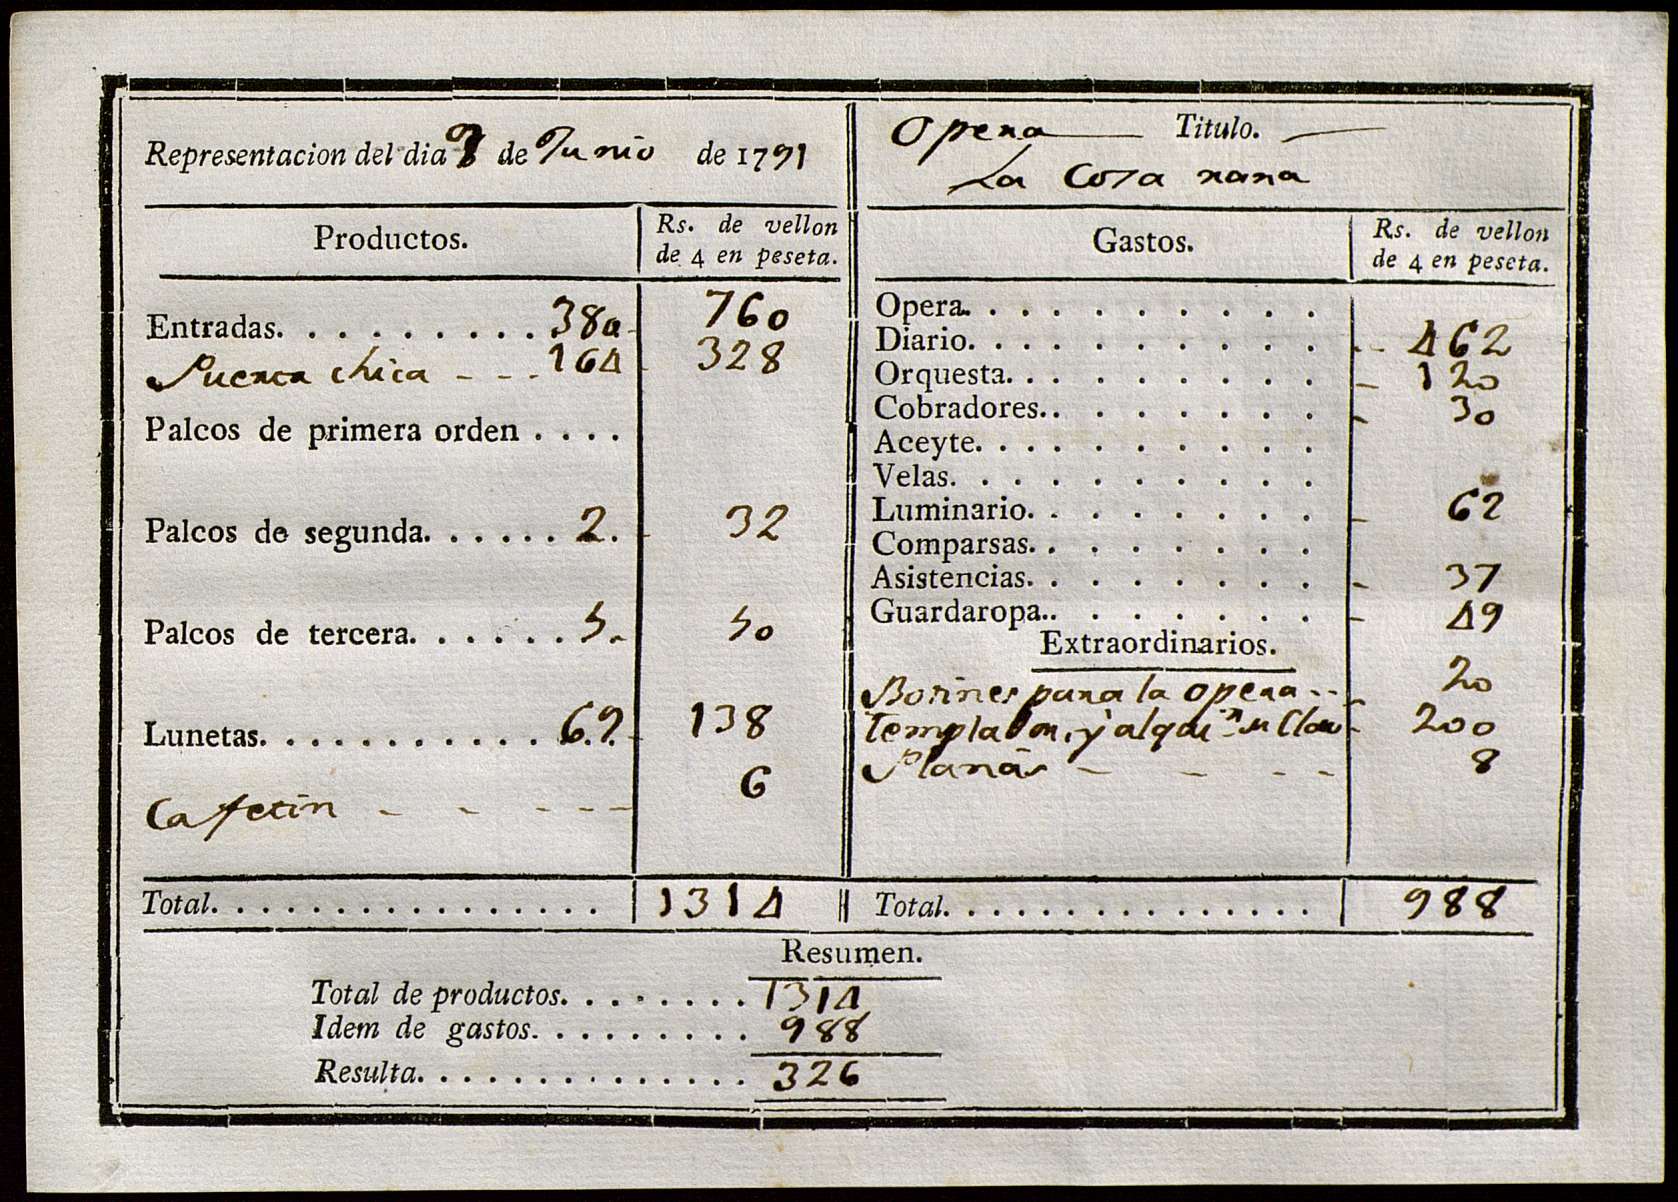 Representacion del dia 8 de Junio de 1791
Opera Titulo.
La Cosa rara
Productos. Rs. de vellon de 4 en peseta.
Entradas. . . . . . . . . 380 760
Puerta chica - - - 164 328
Palcos de primera orden . . . .
Palcos de segunda. . . . . . 2. 32
Palcos de tercera. . . . . . 5. 50
Lunetas. . . . . . . . . . . 69. 138
Cafetin - - - - - 6
Total. . . . . . . . . . . . . . . . 1314
Gastos. Rs. de vellon de 4 en peseta.
Opera. . . . . . . . . .
Diario. . . . . . . . . . 462
Orquesta. . . . . . . . . 120
Cobradores.. . . . . . . . 30
Aceyte. . . . . . . . . .
Velas. . . . . . . . . .
Luminario. . . . . . . . 62
Comparsas. . . . . . . .
Asistencias. . . . . . . . 37
Guardaropa.. . . . . . . 49
Extraordinarios.
Botines para la opera - - 20
Templador, y alqui.n 200
Planas - - - - 8
Total. . . . . . . . . . . . . . . 988
Resumen.
Total de productos. . . . . . . . 1314
Idem de gastos. . . . . . . . . 988
Resulta. . . . . . . . . . . . . . 326